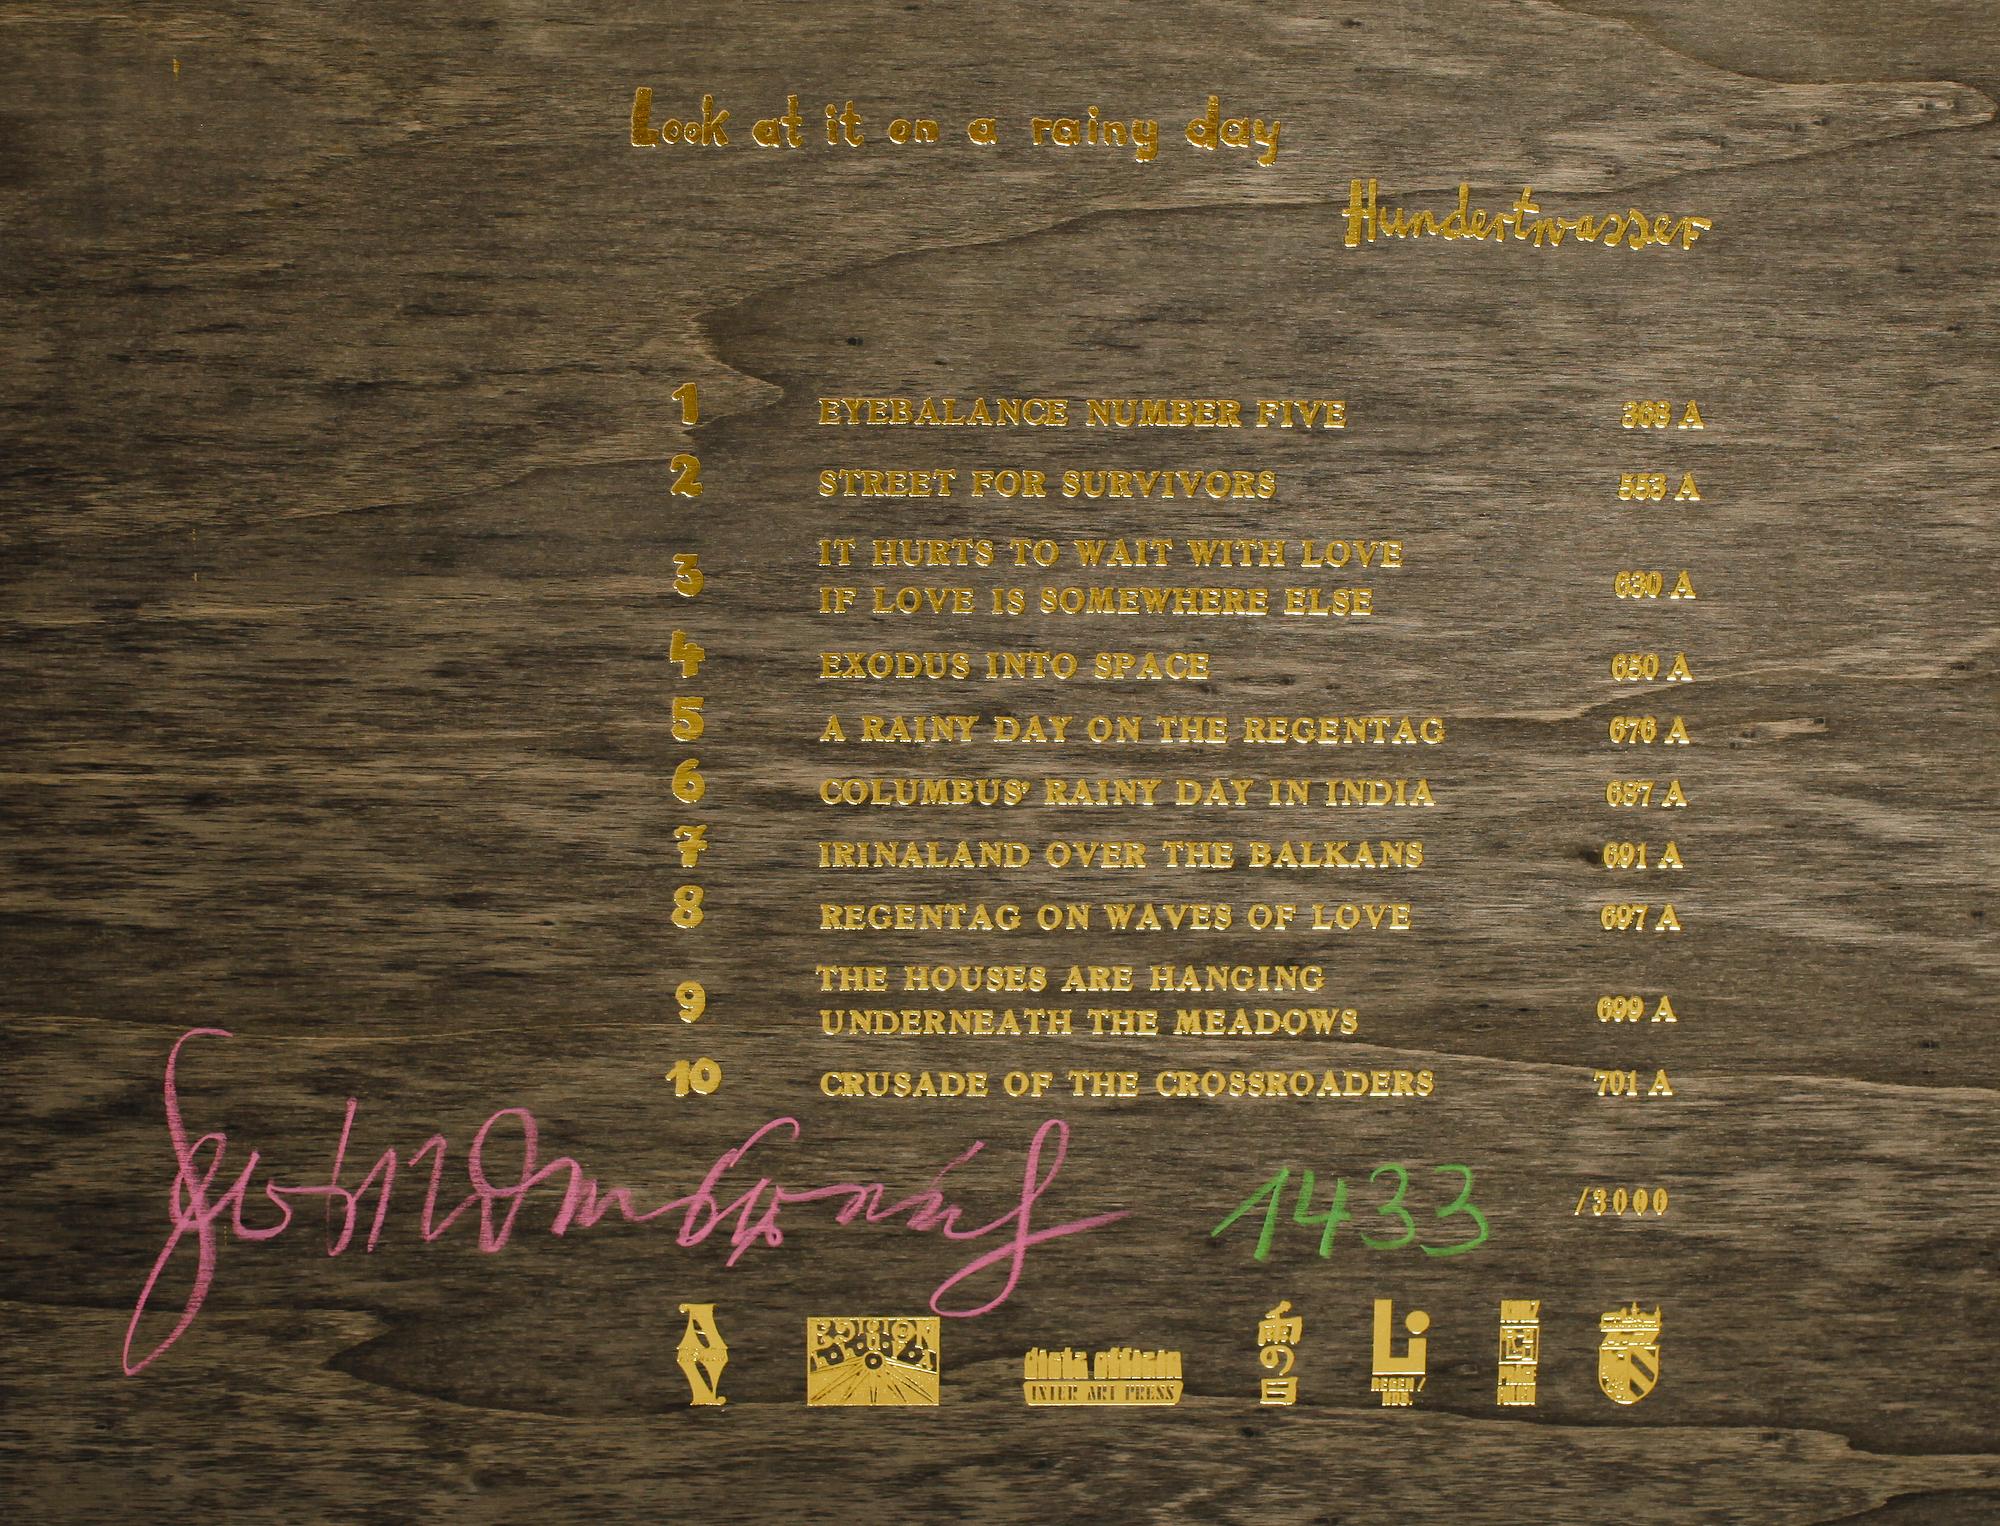 Look at it on a rainy day
Hundertwasser
1 EYEBALANCE NUMBER FIVE 368 A
2 STREET FOR SURVIVORS 553 A
3 IT HURTS TO WAIT WITH LOVE
IF LOVE IS SOMEWHERE ELSE 630 A
4 EXODUS INTO SPACE 650 A
5 A RAINY DAY ON THE REGENTAG 676 A
6 COLUMBUS' RAINY DAY IN INDIA 687 A
7 IRINALAND OVER THE BALKANS 691 A
8 REGENTAG ON WAVES OF LOVE 697 A
9 THE HOUSES ARE HANGING
UNDERNEATH THE MEADOWS 699 A
10 CRUSADE OF THE CROSSROADERS 701 A
1433 /3000
A
V
EDITION
dietz offizin
INTER ART PRESS
雨の日
Li
REGEN/